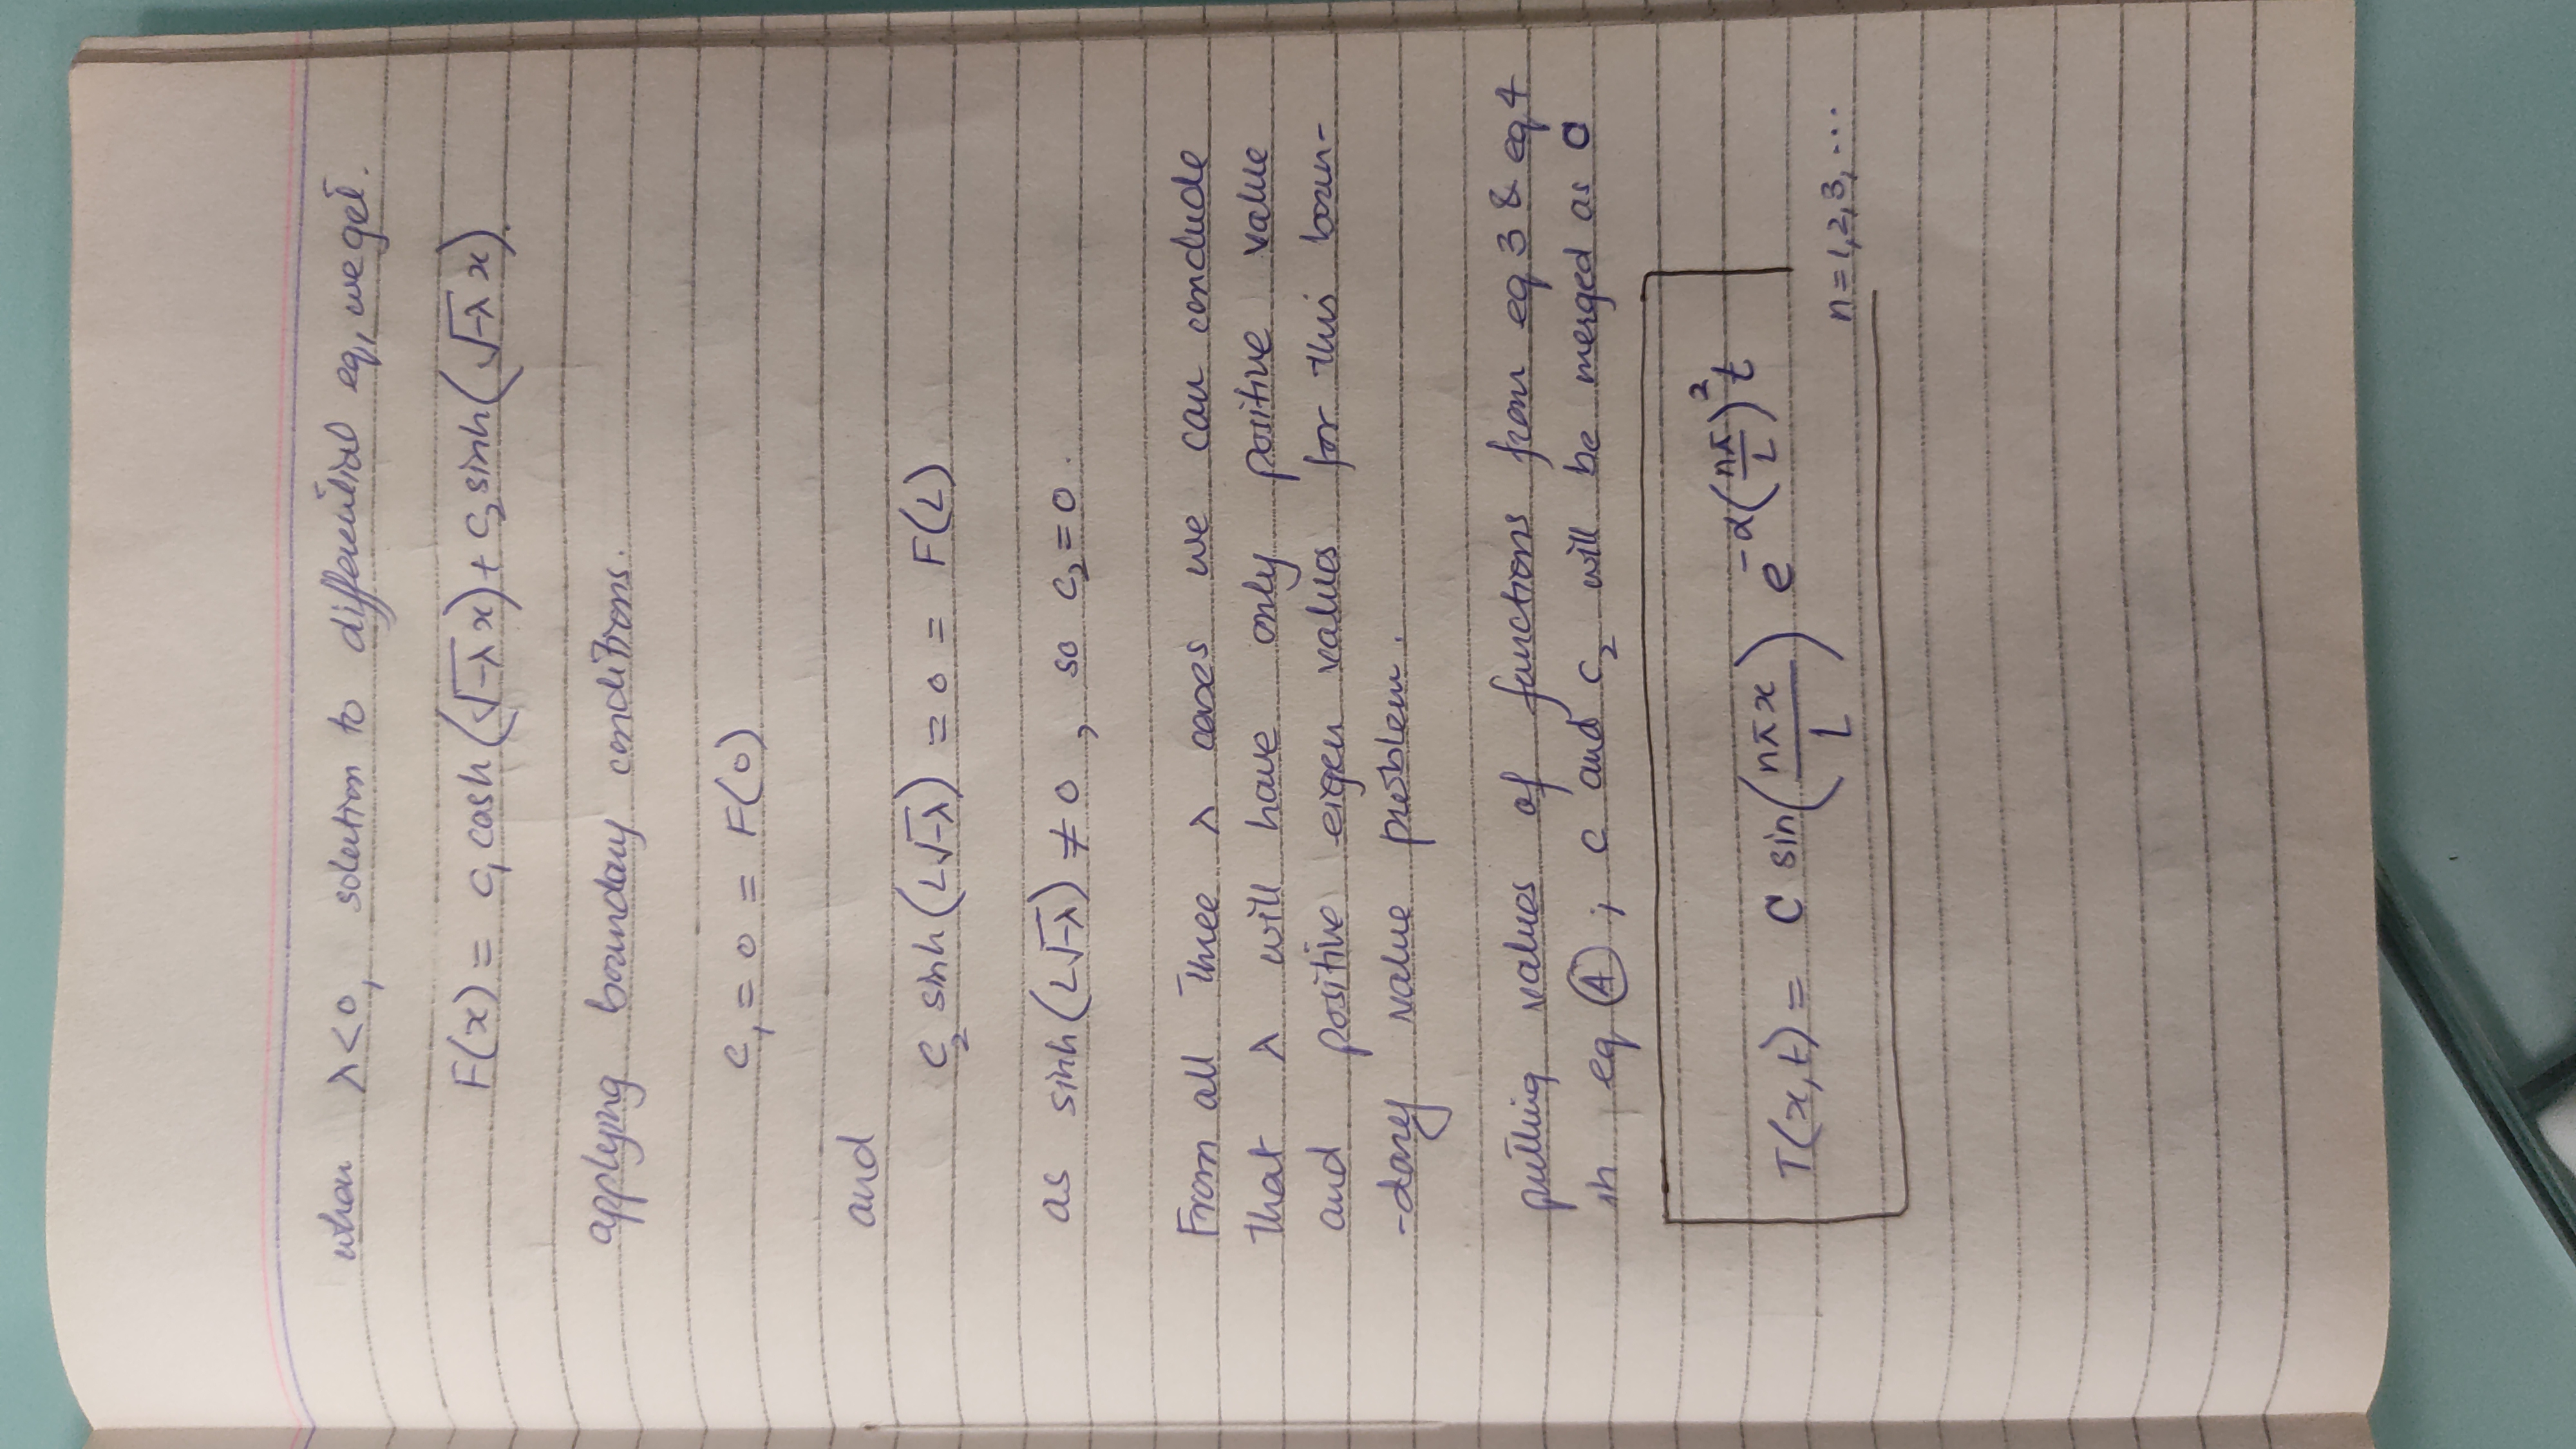 when λ<0, solution to differential eq, we get.
F(x) = c₁ cosh (√-λ x) + c₂ sinh (√-λ x).
applying boundary conditions.
c₁ = 0 = F(0)
and
c₂ sinh (L√-λ) = 0 = F(L)
as sinh (L√-λ) ≠ 0 , so c₂ = 0.
From all three λ cases we can conclude
that λ will have only positive value
and positive eigen values for this boun-
-dary value problem.
putting values of functions from eq 3 & eq 4
in eq Ⓐ ; c and c₂ will be merged as C
T(x,t) = C sin(nπx/L) e^{-α(nπ/L)²t}
n = 1,2,3, ...